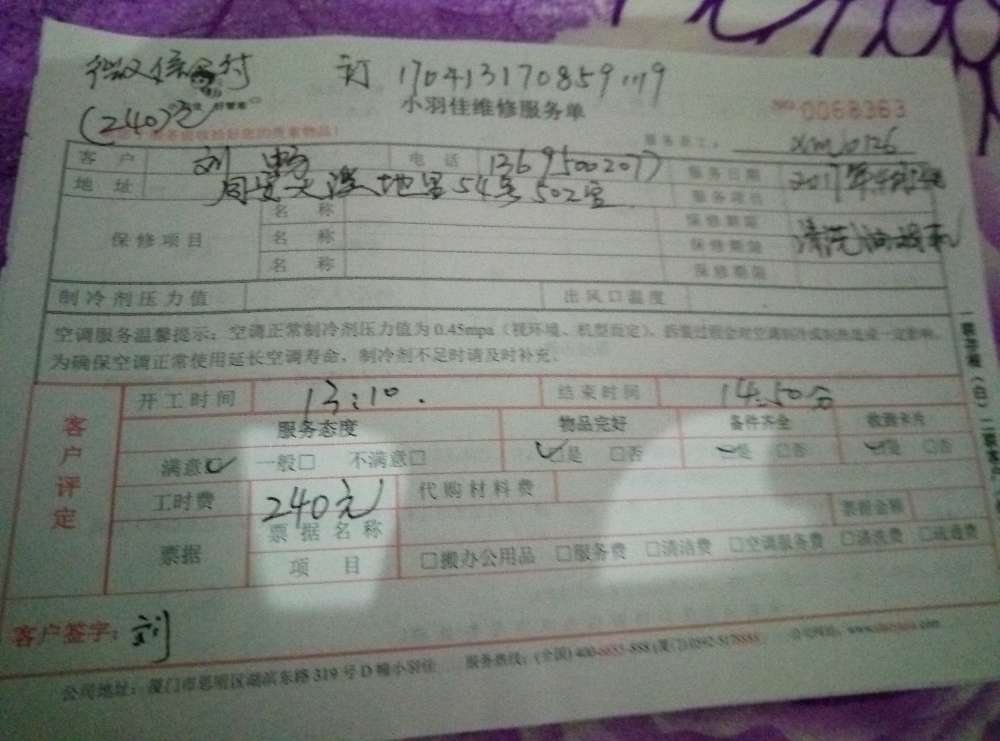 微信支付 订 170413170859119
(240)元
小羽佳维修服务单 NO 0068363
服务员工: xm0126
客户 刘畅 电话 13695002077 服务日期 2017年
地址 同安 地号54号502室 服务项目
保修项目 名称 保修期限 清洗油烟机
名称 保修期限
名称 保修期限
制冷剂压力值 出风口温度
空调服务温馨提示:空调正常制冷剂压力值为0.45mpa(视环境、机型而定)、拆装过程会对空调制冷或制热造成一定影响,
为确保空调正常使用延长空调寿命,制冷剂不足时请及时补充。
客户评定
开工时间 13:10. 结束时间 14:50分
服务态度 物品完好 备件齐全 收到卡片
满意□ 一般□ 不满意□ □是 □否 □是 □否 □是 □否
工时费 240元 代购材料费
票据 票据名称 票据金额
项目 □搬办公用品 □服务费 □清洁费 □空调服务费 □清洗费 □疏通费
客户签字: 刘
公司地址:厦门市思明区湖滨东路319号D幢小羽佳 服务热线:(全国)400-6655-888(厦门)0592-5178888